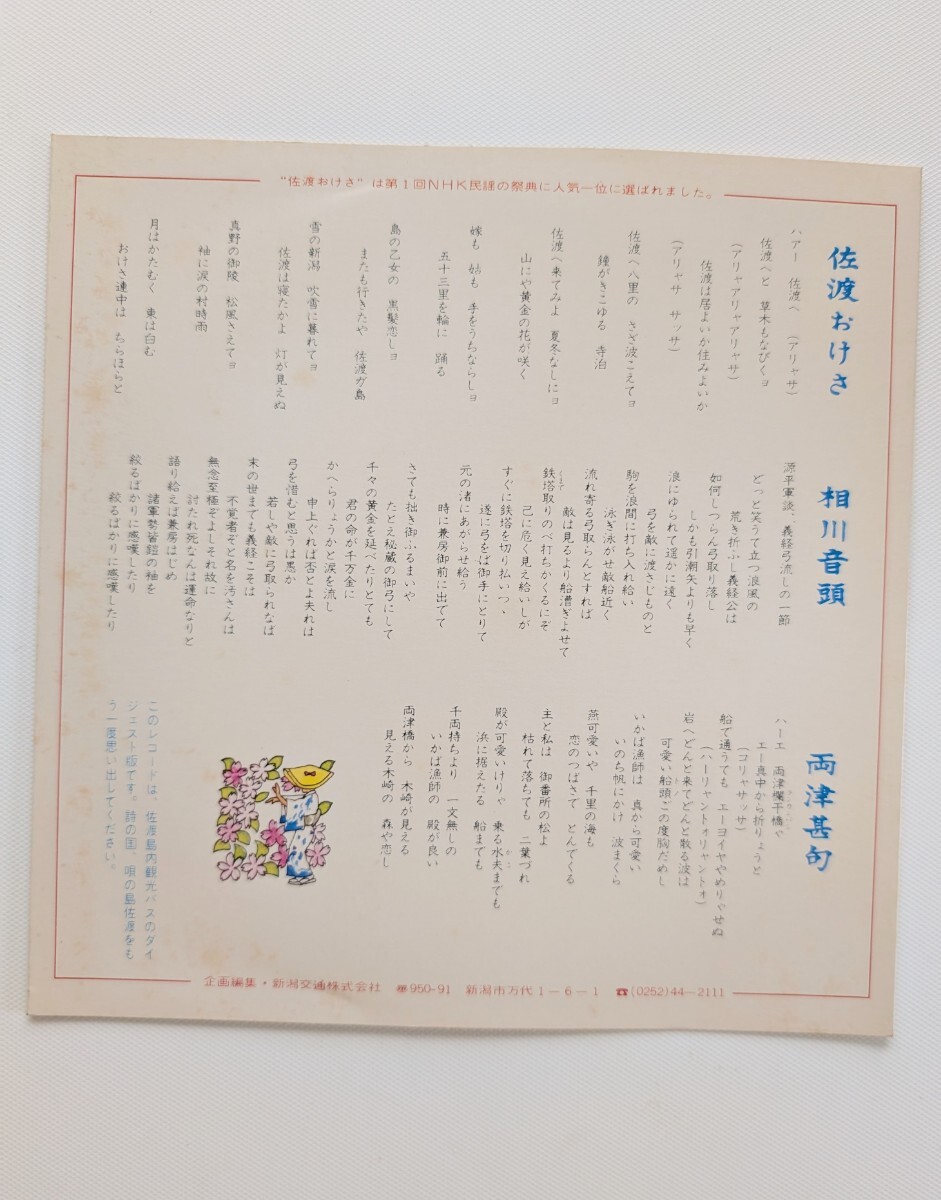 "佐渡おけさ"は第1回NHK民謡の祭典に人気一位に選ばれました。
佐渡おけさ
ハアー 佐渡へ (アリャサ)
佐渡へと 草木もなびくヨ
(アリャアリャアリャサ)
佐渡は居よいか住みよいか
(アリャサ サッサ)
佐渡へ八里の さざ波こえてヨ
鐘がきこゆる 寺泊
佐渡へ来てみよ 夏冬なしにヨ
山にや黄金の花が咲く
嫁も 姑も 手をうちならしョ
五十三里を輪に 踊る
島の乙女の 黒髪恋しョ
またも行きたや 佐渡ガ島
雪の新潟 吹雪に暮れてョ
佐渡は寝たかよ 灯が見えぬ
真野の御陵 松風さえてョ
袖に涙の村時雨
月はかたむく 東は白む
おけさ連中は ちらほらと
相川音頭
源平軍談、義経弓流しの一節
どっと笑うて立つ浪風の
荒き折ふし義経公は
如何しつらん弓取り落し
しかも引潮矢よりも早く
浪にゆられて遥かに遠く
弓を敵に渡さじものと
駒を浪間に打ち入れ給い
泳ぎ泳がせ敵船近く
流れ寄る弓取らんとすれば
敵は見るより船漕ぎよせて
鉄塔取りのべ打ちかくるにぞ
己に危く見え給いしが
すぐに鉄塔を切り払いつゝ
遂に弓をば御手にとりて
元の渚にあがらせ給う
時に兼房御前に出でて
さても拙き御ふるまいや
たとえ秘蔵の御弓にして
千々の黄金を延べたりとても
君の命が千万金に
かへらりょうかと涙を流し
申上ぐれば否とよ夫れは
弓を惜むと思うは愚か
若しや敵に弓取られなば
末の世までも義経こそは
不覚者ぞと名を汚さんは
無念至極ぞよしそれ故に
討たれ死なんは運命なりと
語り給えば兼房はじめ
諸軍勢皆鎧の袖を
絞るばかりに感嘆したり
絞るばかりに感嘆したり
両津甚句
ハーエ 両津欄干橋ゃ
エー真中から折りょうと
(コリャサッサ)
船で通うても エーヨイヤやめりゃせぬ
(ハーリャントォリャントォ)
岩へどんと来てどんと散る波は
可愛い船頭ごの度胸だめし
いかば漁師は 真から可愛い
いのち帆にかけ 波まくら
燕可愛いや 千里の海も
恋のつばさで とんでくる
主と私は 御番所の松よ
枯れて落ちても 二葉づれ
殿が可愛いけりゃ 乗る水夫までも
浜に据えたる 船までも
千両持ちより 一文無しの
いかば漁師の 殿が良い
両津橋から 木崎が見える
見える木崎の 森や恋し
このレコードは、佐渡島内観光バスのダイ
ジェスト版です。詩の国、唄の島佐渡をも
う一度思い出してください。
企画編集・新潟交通株式会社 〠950-91 新潟市万代1-6-1 ☎(0252)44-2111